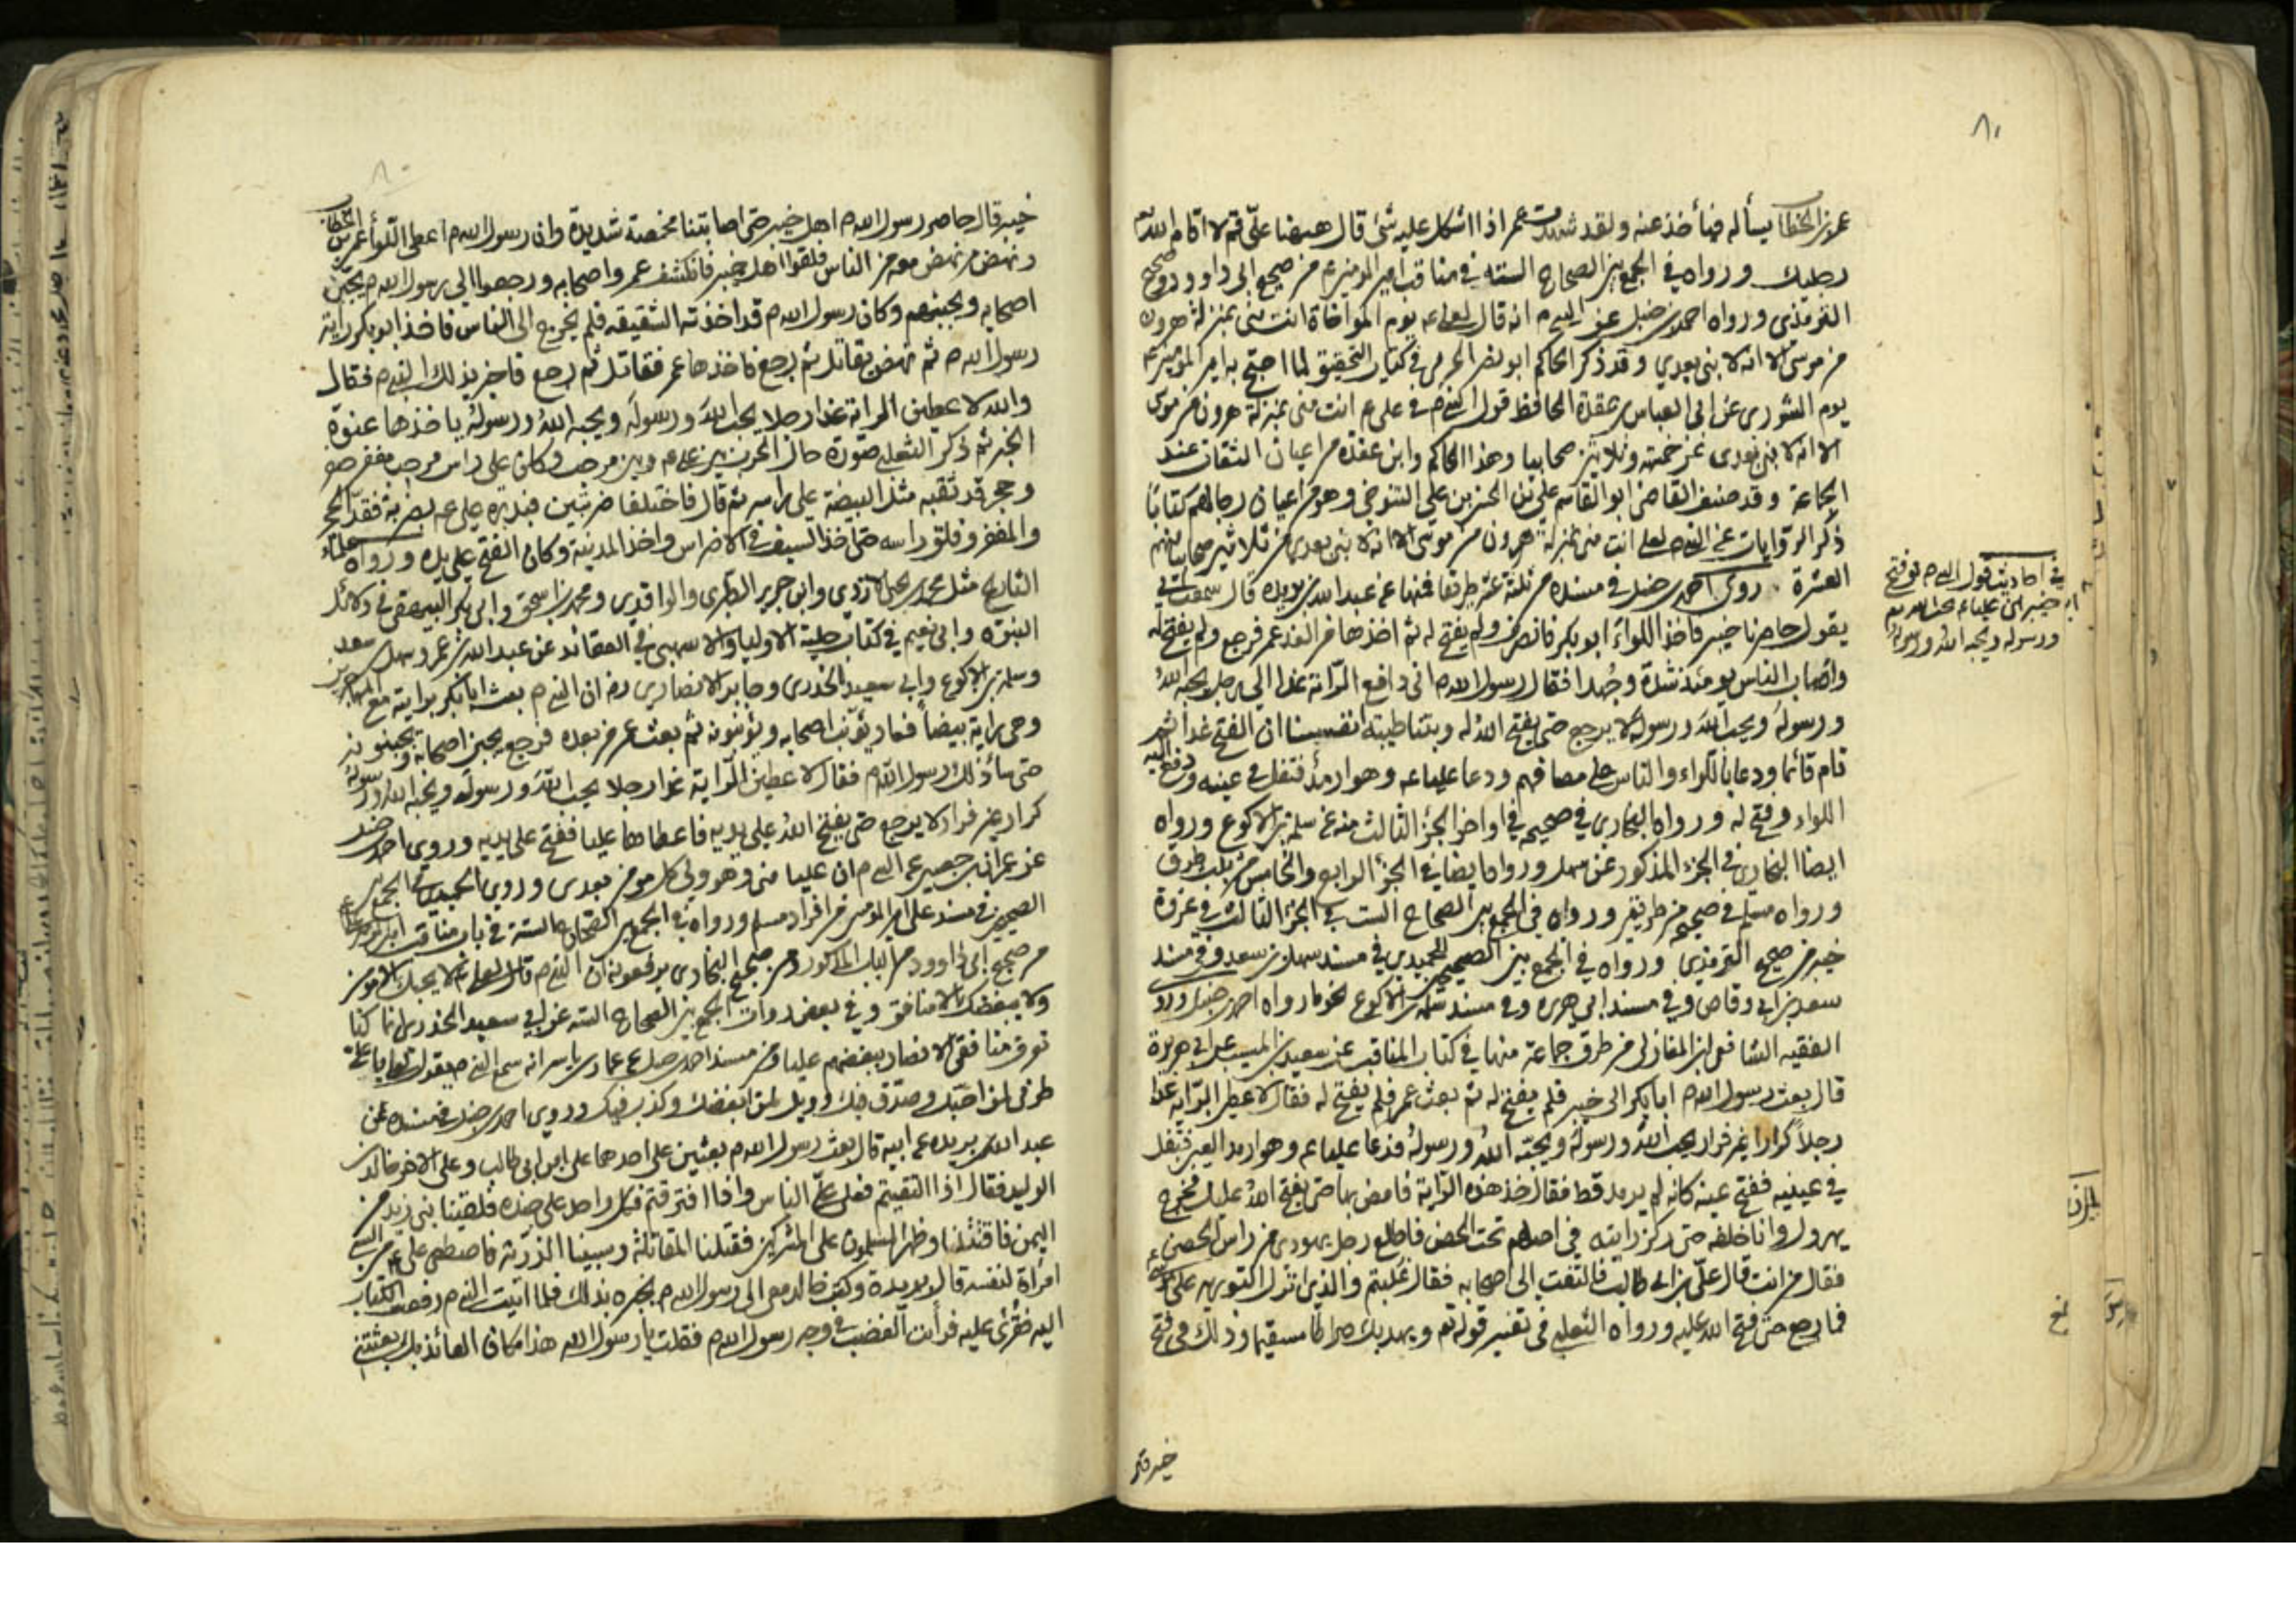 ٨٠
عمر بن الخطاب يسأله فيأخذ عنه ولقد شهدت عمر اذا اشكل عليه شئ قال ههنا علي قم لا اقام الله
رجليك ورواه في الجمع بين الصحاح الستة في مناقب امير المومنين ع من صحيح ابى داوود وصحيح
الترمذى ورواه احمد بن حنبل عن النبي م انه قال لعلى ع يوم المواخاة انت منى بمنزلة هرون
من موسى الا انه لا نبي بعدي وقد ذكر الحاكم ابو نصر الحربي في كتاب التحقيق لما احتج به امير المومنين ع
يوم الشورى عن ابى العباس بن عقدة الحافظ قول النبي م في على ع انت منى بمنزلة هرون من موسى
الا انه لا نبي بعدى عن خمسة وثلاثين صحابيا وهذا الحاكم وابن عقدة من اعيان الثقات عند
الجماعة وقد صنف القاضي ابو القاسم علي بن المحسن بن علي التنوخي وهو من اعيان رجالهم كتابا
ذكر الروايات عن النبي م لعلى انت منى بمنزلة هرون من موسى الا انه لا نبي بعدى عن ثلاثين صحابيا منهم
العشرة روى احمد بن حنبل في مسنده من ثلثة عشر طريقا فمنها عن عبد الله بن بريده قال سمعت ابي
يقول حاصرنا خيبر فاخذ اللواء ابو بكر فانصرف ولم يفتح له ثم اخذها من الغد عمر فرجع ولم يفتح له
واصاب الناس يومئذ شدة وجهد فقال رسول الله م انى دافع الراية غدا الى رجل يحبه الله
ورسوله ويحب الله ورسوله لا يرجع حتى يفتح الله له وبتنا طيبة انفسنا ان الفتح غدا ثم
قام قائما ودعا باللواء والناس على مصافهم ودعا عليا ع وهو ارمد فتفل في عينيه ودفع اليه
اللواء وفتح له ورواه البخارى في صحيحه في اواخر الجزء الثالث منه عن سلمة بن الاكوع ورواه
ايضا البخارى في الجزء المذكور عن سهل ورواه ايضا في الجزء الرابع والخامس من ثلث طرق
ورواه مسلم في صحيحه من طريقين ورواه في الجمع بين الصحاح الست في الجزء الثالث في غزوة
خيبر من صحيح الترمذى ورواه في الجمع بين الصحيحين للحميدى في مسند سهل بن سعد وفي مسند
سعد بن ابى وقاص وفي مسند ابى هريره وفي مسند سلمة بن الاكوع نحو ما رواه احمد بن حنبل وروى
الفقيه الشافعى ابن المغازلى من طرق جماعة منها في كتاب المناقب عن سعيد بن المسيب عن ابى هريرة
قال بعث رسول الله م ابا بكر الى خيبر فلم يفتح له ثم بعث عمر فلم يفتح له فقال لاعطين الراية غدا
رجلا كرارا غير فرار يحب الله ورسوله ويحبه الله ورسوله فدعا عليا ع وهو ارمد العين فتفل
في عينيه ففتح عينه كانه لم يرمد قط فقال خذ هذه الراية فامض بها حتى يفتح الله عليك فخرج
يهرول وانا خلفه حتى ركز رايته في اصلهم تحت الحصن فاطلع رجل يهودى من راس الحصن
فقال من انت قال علي بن ابى طالب فالتفت الى اصحابه فقال غلبتم والذى انزل التورية على موسى
فما رجع حتى فتح الله عليه ورواه الثعلبى في تفسير قوله تع ويهديك صراطا مستقيما وذلك في فتح
خيبر قال
في احاديث قول النبي م يوم فتح
خيبر ان عليا ع يحب الله
ورسوله ويحبه الله ورسوله
نخ
٨٠
خيبر قال حاصر رسول الله م اهل خيبر حتى اصابتنا مخمصة شديدة وان رسول الله م اعطى اللواء عمر بن الخطاب
ونهض من نهض معه من الناس فلقوا اهل خيبر فانكشف عمر واصحابه ورجعوا الى رسول الله م يجبنه
اصحابه ويجبنهم وكان رسول الله م قد اخذته الشقيقه فلم يخرج الى الناس فاخذ ابو بكر راية
رسول الله م ثم نهض يقاتل ثم رجع فاخذها عمر فقاتل ثم رجع فاخبر بذلك النبي م فقال
والله لاعطين الراية غدا رجلا يحب الله ورسوله ويحبه الله ورسوله ياخذها عنوة
الخبر ثم ذكر الثعلبى صورة حال الحرب بين على ع وبين مرحب وكان على راس مرحب مغفر
وحجر قد ثقبه مثل البيضة على راسه ثم قال فاختلفا ضربتين فبدره على ع بضربة فقد الحجر
والمغفر وفلق راسه حتى اخذ السيف في الاضراس واخذ المدينة وكان الفتح على يده ورواه علماء
التاريخ مثل محمد بن يحيى الازدى وابن جرير الطبرى والواقدى ومحمد بن اسحق وابى بكر البيهقى في دلائل
النبوة وابى نعيم في كتاب حلية الاولياء والاشنهى في العقائد عن عبد الله بن عمر وسهل بن سعد
وسلمة بن الاكوع وابى سعيد الخدرى وجابر الانصارى رض ان النبي م بعث ابا بكر برايته مع المهاجرين
وهى راية بيضا فعاد يؤنب اصحابه ويؤنبونه ثم بعث عمر من بعده فرجع يجبن اصحابه ويجبنونه
حتى ساء ذلك رسول الله م فقال لاعطين الراية غدا رجلا يحب الله ورسوله ويحبه الله ورسوله
كرار غير فرار لا يرجع حتى يفتح الله على يديه فاعطاها عليا ففتح على يديه وروى احمد بن حنبل
عن عمران بن حصين عن النبي م ان عليا منى وهو ولى كل مومن بعدى وروى الحميدى في الجمع بين
الصحيحين في مسند على امير المومنين من افراد مسلم ورواه في الجمع بين الصحاح الستة في باب مناقب امير المومنين ع
من صحيح ابى داوود من الباب المذكور ومن صحيح البخارى يرفعونه ان النبي م قال لعلى ع لا يحبك الا مومن
ولا يبغضك الا منافق وفي بعض روايات الجمع بين الصحاح الستة عن ابى سعيد الخدرى انا كنا
نعرف منافقى الانصار ببغضهم عليا ومن مسند احمد بن حنبل عن عمار بن ياسر انه سمع النبي م يقول لعلى يا على
طوبى لمن احبك وصدق فيك وويل لمن ابغضك وكذب فيك وروى احمد بن حنبل في مسنده عن
عبد الله بن بريده عن ابيه قال بعث رسول الله م بعثين على احدهما على ابن ابى طالب وعلى الاخر خالد بن
الوليد فقال اذا التقيتم فعلى على الناس واذا افترقتم فكل واحد على جنده فلقينا بنى زيد من
اليمن فاقتتلنا وظهر المسلمون على المشركين فقتلنا المقاتلة وسبينا الذرية فاصطفى على ع من السبى
امراة لنفسه قال بريدة وكتب خالد معى الى رسول الله م يخبره بذلك فلما اتيت النبي م دفعت الكتاب
اليه فقرئ عليه فرأيت الغضب في وجه رسول الله م فقلت يا رسول الله هذا مكان العائذ بك بعثتنى